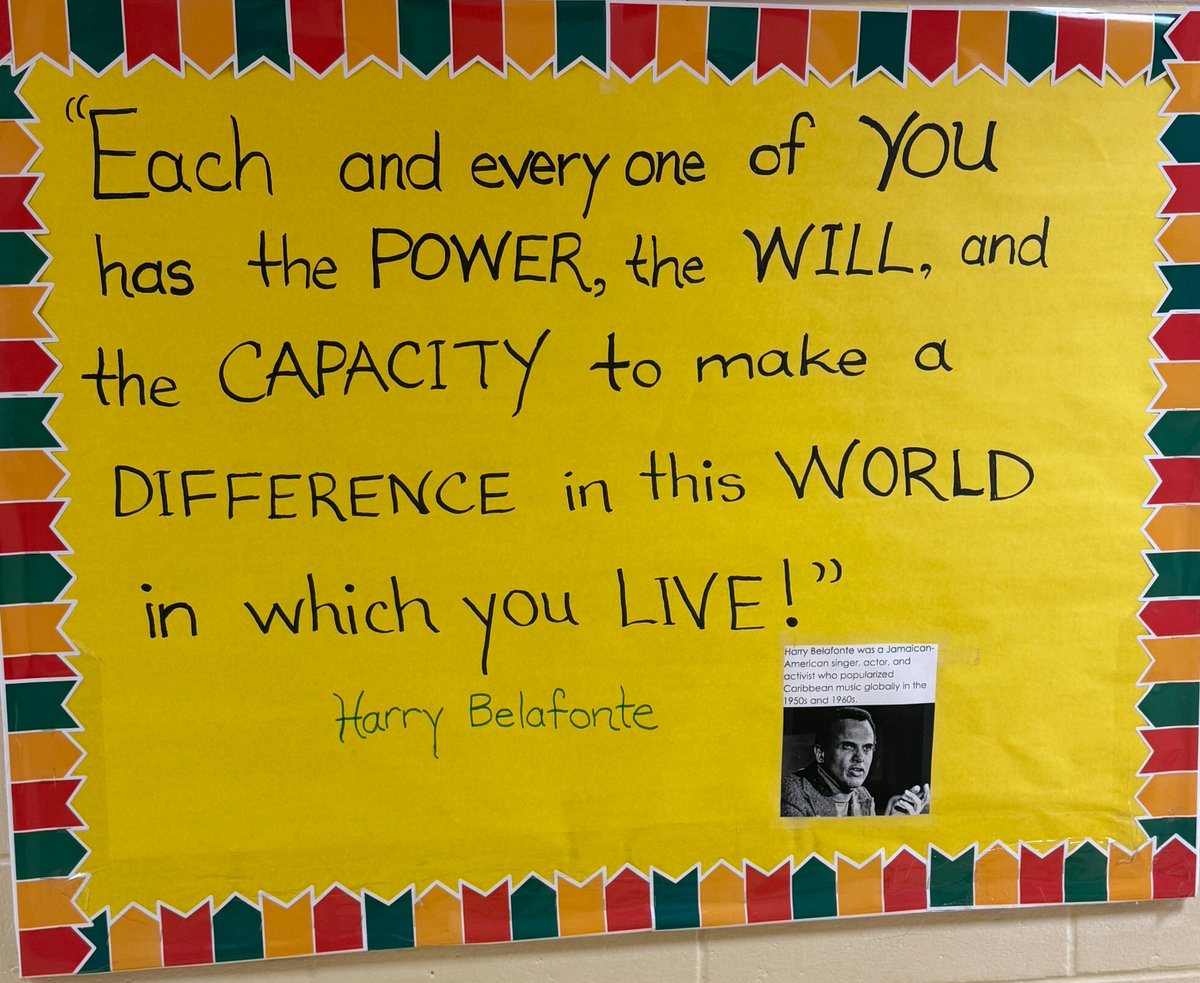 “Each and every one of YOU
has the POWER, the WILL, and
the CAPACITY to make a
DIFFERENCE in this WORLD
in which you LIVE!”
Harry Belafonte
Harry Belafonte was a Jamaican-
American singer, actor, and
activist who popularized
Caribbean music globally in the
1950s and 1960s.